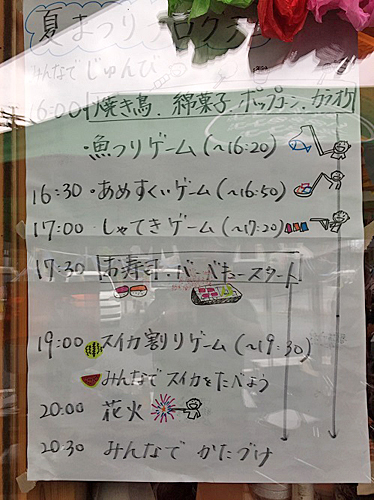 夏まつりプログラム
みんなで じゅんび
16:00 焼き鳥．綿菓子．ポップコーン．カラオケ
・魚つりゲーム(〜16:20)
16:30・あめすくいゲーム(〜16:50)
17:00・しゃてきゲーム(〜17:20)
17:30 お寿司・バーベキュースタート
19:00 スイカ割りゲーム(〜19:30)
みんなで スイカをたべよう
20:00 花火
20:30 みんなで かたづけ